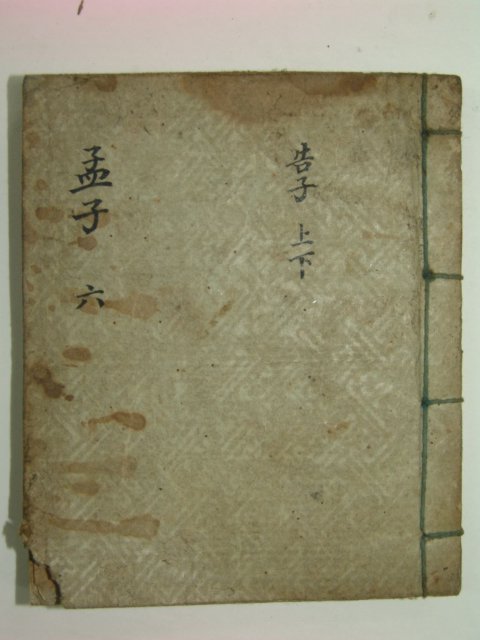 告子 上下
孟子 六